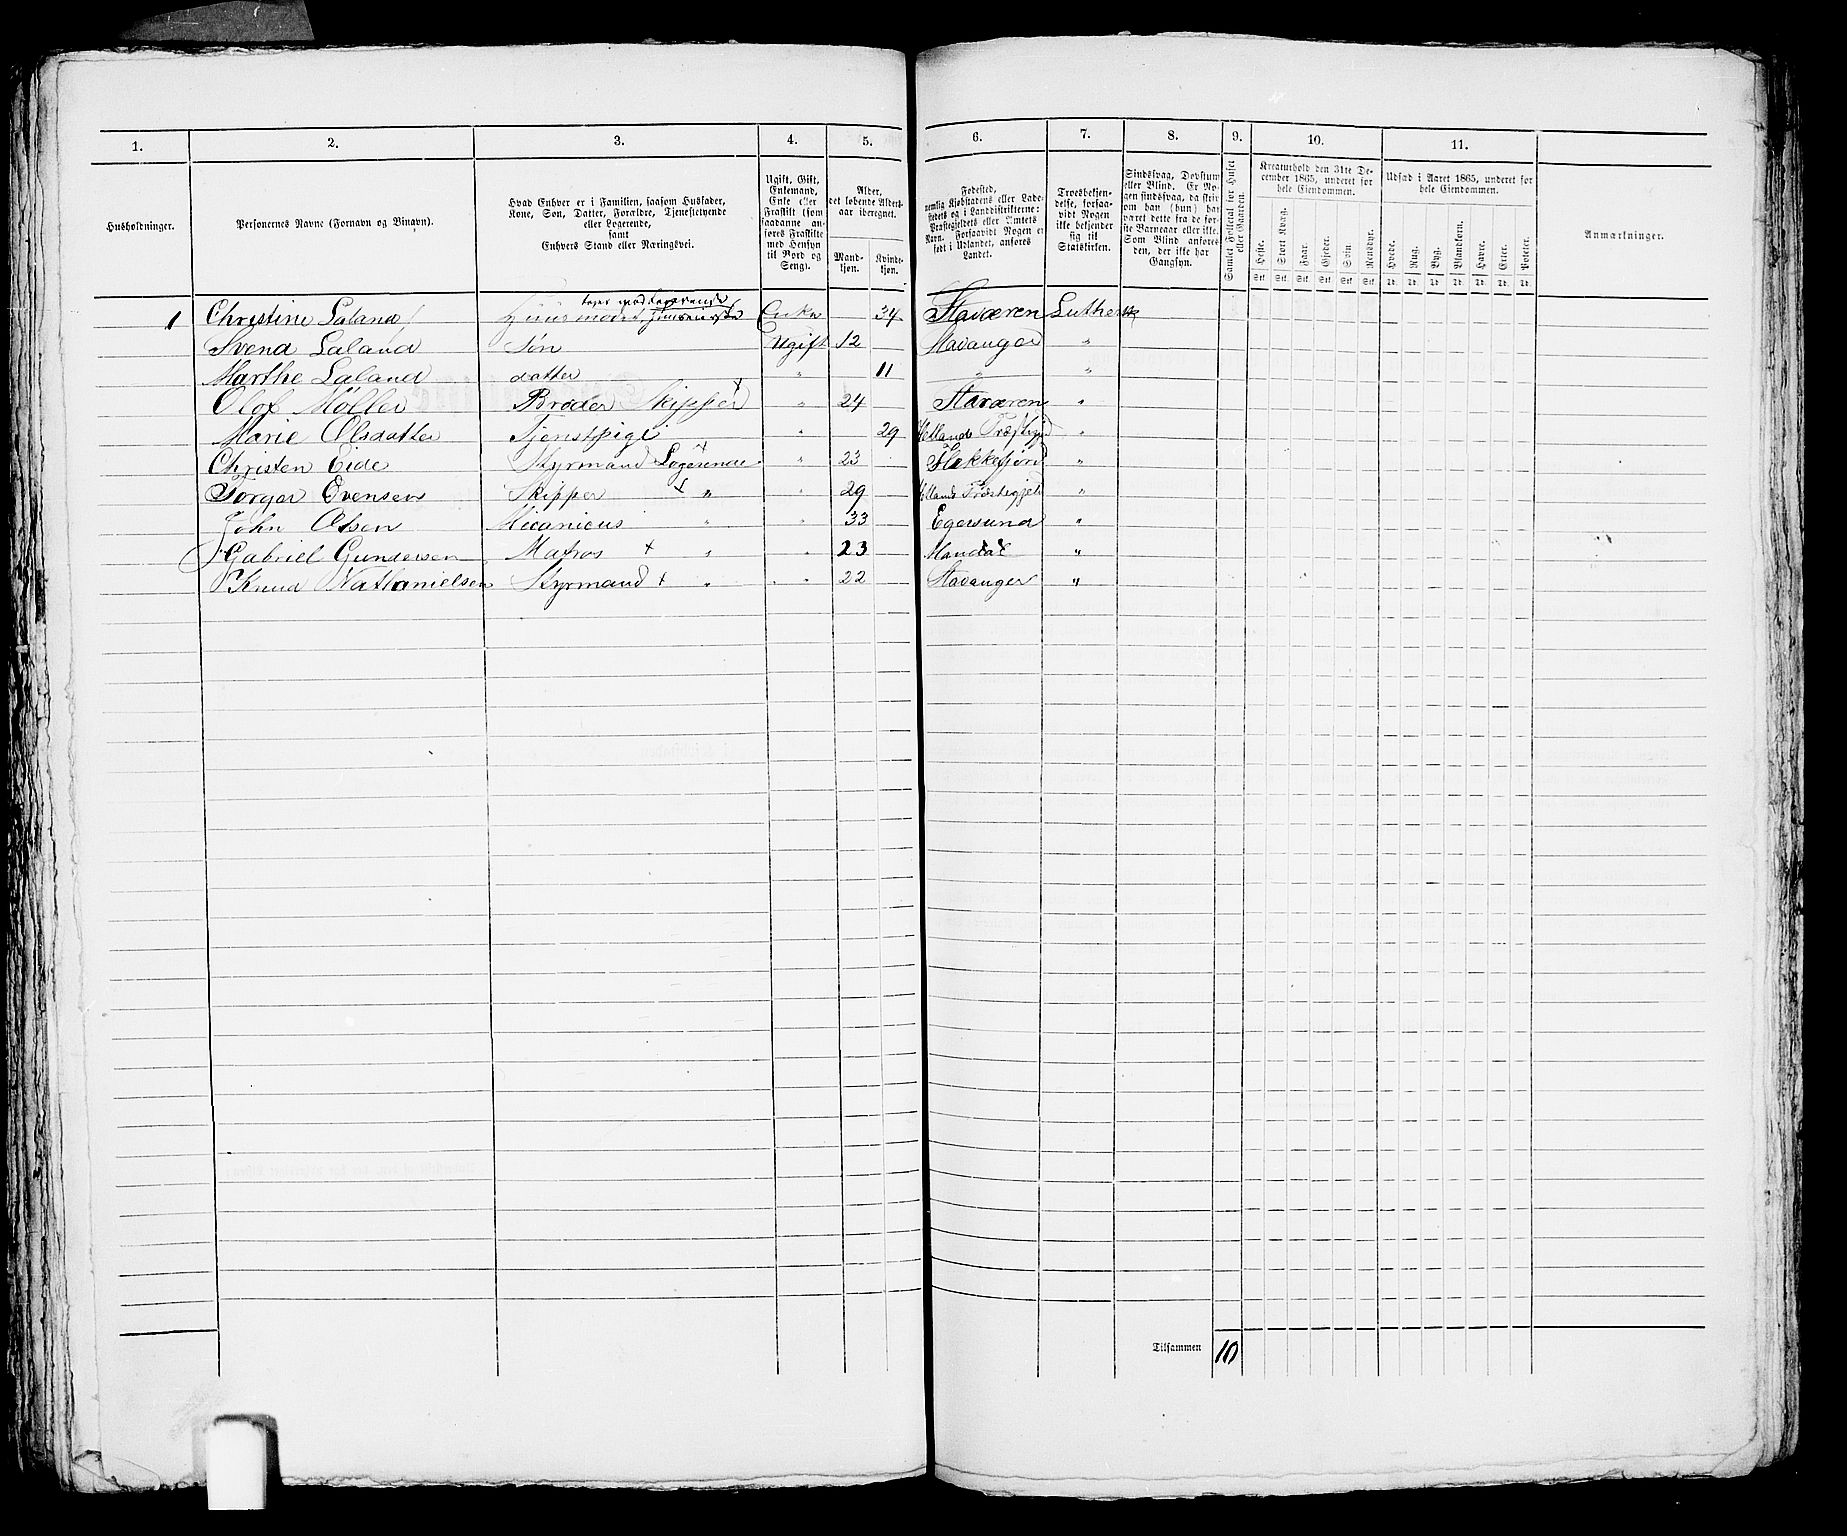 1. 2. 3. 4. 5. 6. 7. 8. 9. 10. 11.
Husholdninger.
Personernes Navne (Fornavn og Binavn).
Hvad Enhver er i Familien, saasom Husfader,
Kone, Søn, Datter, Forældre, Tjenestetyende
eller Logerende,
samt
Enhvers Stand eller Næringsvei.
Ugift, Gift,
Enkemand,
Enke eller
Fraskilt (som
saadanne an-
føres Fraskilte
med Hensyn
til Bord og
Seng).
Alder,
det løbende Alders-
aar iberegnet.
Mand-
kjøn.
Kvinde-
kjøn.
Fødested,
nemlig Kjøbstadens eller Lade-
stedets og i Landdistrikterne:
Præstegjeldets eller Amtets
Navn. Forsaavidt Nogen er
født i Udlandet, anføres
Landet.
Troesbekjen-
delse, forsaa-
vidt Nogen
ikke bekjender
sig til
Statskirken.
Sindssvag, Døvstum
eller Blind. Er No-
gen sindssvag, da skri-
ves om han (hun) har
været dette fra de før-
ste Barneaar eller ikke.
Som Blind anføres
den, der ikke har
Gangsyn.
Samlet Folketal for Huset
eller Gaarden.
Kreaturhold den 31te De-
cember 1865, underet for
hele Eiendommen.
Heste. Stort Kvæg. Faar. Gjeder. Svin. Rensdyr.
Udsæd i Aaret 1865, underet for
hele Eiendommen.
Hvede. Rug. Byg. Blandkorn. Havre. Erter. Poteter.
Anmærkninger.
Stk. Stk. Stk. Stk. Stk. Stk. Td. Td. Td. Td. Td. Td. Td.
tager mod Logerende
1 Christine Laland Huusmoder Enke 34 Staværen Luthersk
Svend Laland Søn Ugift 12 Stavanger "
Marthe Laland datter " 11 " "
Olof Møller Broder Skipper " 24 Staværen "
Marie Olsdatter Tjenstpige " 29 Hetlands Præstegj "
Christen Eide Styrmand Logerende " 23 Flekkefjord "
Torger Evensen Skipper " " 29 Hetlands Præstegjeld "
John Olsen Micanicus " " 33 Egersund "
Gabriel Gundersen Matros + " " 23 Mandal "
Knud Nathanielsen Styrmand + " " 22 Stavanger "
Tilsammen 10